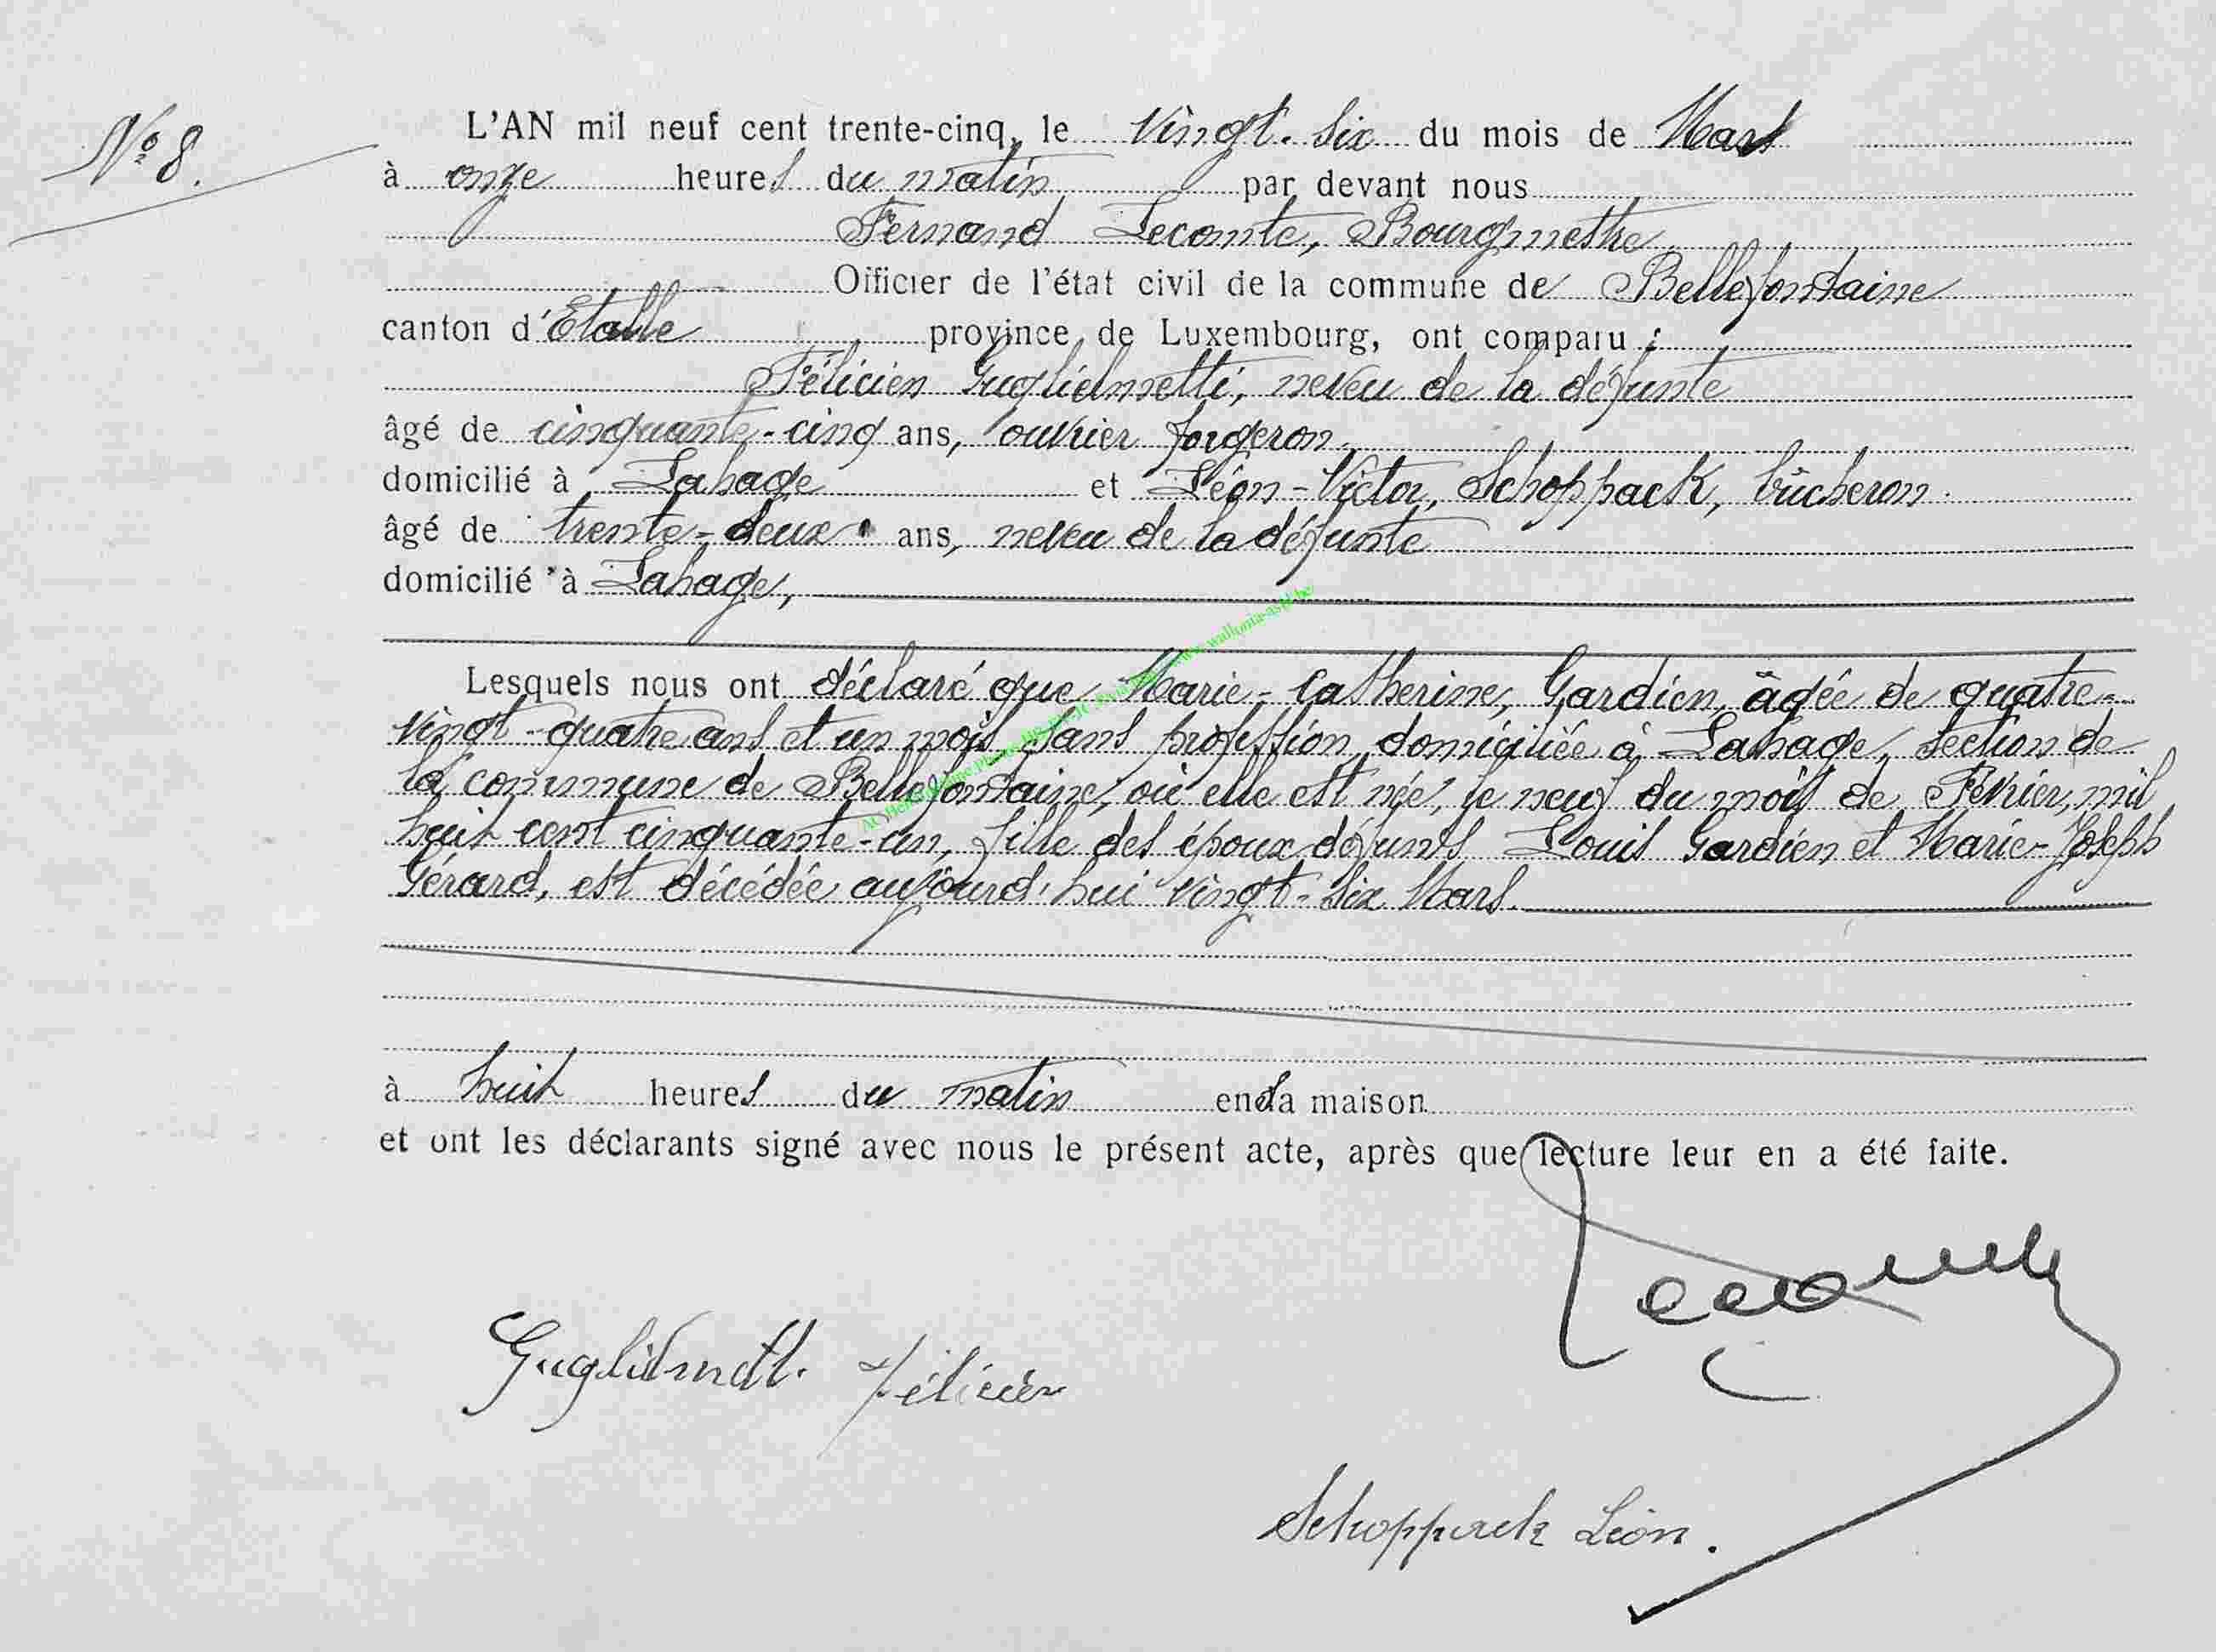 N° 8.
L'AN mil neuf cent trente-cinq, le Vingt-six du mois de Mars
à onze heures du matin par devant nous
Fernand Lecomte, Bourgmestre
Officier de l'état civil de la commune de Bellefontaine
canton d'Etalle province de Luxembourg, ont comparu :
Félicien Guglielmetti, neveu de la défunte
âgé de cinquante-cinq ans, ouvrier forgeron
domicilié à Lahage et Léon-Victor, Schoppack, bûcheron.
âgé de trente-deux ans, neveu de la défunte
domicilié à Lahage,
Lesquels nous ont déclaré que Marie-Catherine, Gardien, âgée de quatre-
vingt-quatre ans et un mois sans profession, domiciliée à Lahage, section de
la commune de Bellefontaine, où elle est née, le neuf du mois de Février, mil
huit cent cinquante-un, fille des époux défunts Louis Gardien et Marie-Joseph
Gérard, est décédée aujourd'hui vingt-six Mars.
à huit heures du matin en sa maison
et ont les déclarants signé avec nous le présent acte, après que lecture leur en a été faite.
Lecomte
Guglielmetti Félicien
Schoppack Léon.